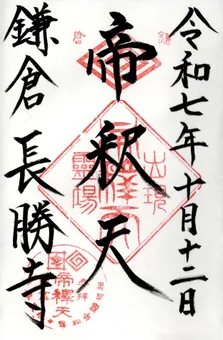 令和七年十月十二日
鎌
倉
帝釈天
出現
霊場
帝釋天
鎌倉 長勝寺